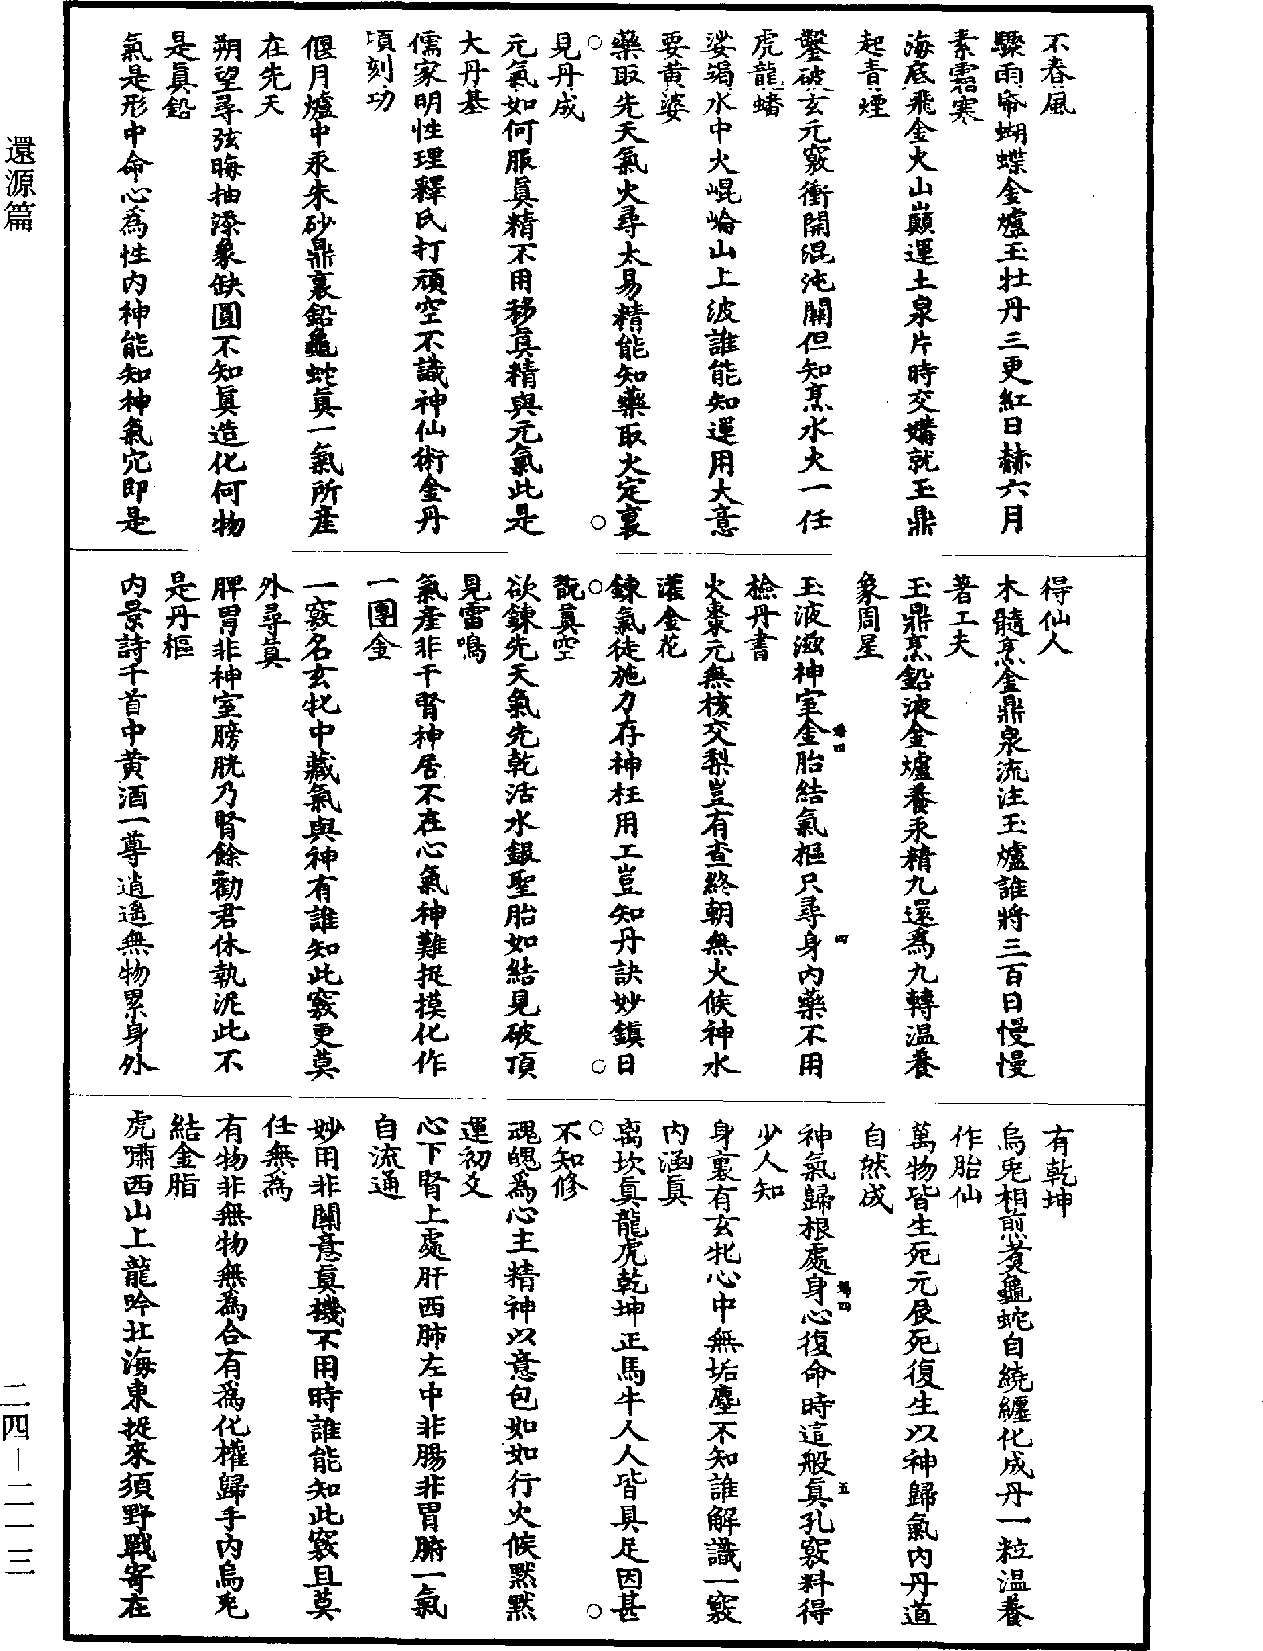 還源篇
不春風
驟雨帘蝴蝶金爐玉牡丹三更紅日赫六月
素霜寒
海底飛金火山巔運土泉片時交媾就玉鼎
起青煙
鑿破玄元竅衝開混沌關但知烹水火一任
虎龍蟠
娑竭水中火崐崘山上波誰能知運用大意
要黃婆
藥取先天氣火尋太易精能知藥取火定裏
見丹成
元氣如何服眞精不用移眞精與元氣此是
大丹基
儒家明性理釋氏打頑空不識神仙術金丹
頃刻功
偃月爐中汞朱砂鼎裏鉛龜蛇眞一氣所產
在先天
朔望尋弦晦抽添象缺圓不知眞造化何物
是眞鉛
氣是形中命心爲性內神能知神氣穴即是
得仙人
木髓烹金鼎泉流注玉爐誰將三百日慢慢
著工夫
玉鼎烹鉛液金爐養汞精九還爲九轉溫養
象周星
玉液滋神室金胎結氣樞只尋身內藥不用
檢丹書
火棗元無核交梨豈有查終朝無火候神水
灌金花
鍊氣徒施力存神枉用工豈知丹訣妙鎮日
翫眞空
欲鍊先天氣先乾活水銀聖胎如結見破頂
見雷鳴
氣產非干腎神居不在心氣神難捉摸化作
一團金
一竅名玄牝中藏氣與神有誰知此竅更莫
外尋眞
脾胃非神室膀胱乃腎餘勸君休執泥此不
是丹樞
內景詩千首中黃酒一尊逍遙無物累身外
有乾坤
烏兎相煎煑龜蛇自繞纏化成丹一粒溫養
作胎仙
萬物皆生死元辰死復生以神歸氣內丹道
自然成
神氣歸根處身心復命時這般眞孔竅料得
少人知
身裏有玄牝心中無垢塵不知誰解識一竅
內涵眞
离坎眞龍虎乾坤正馬牛人人皆具足因甚
不知修
魂魄爲心主精神以意包如如行火候默默
運初爻
心下腎上處肝西肺左中非腸非胃腑一氣
自流通
妙用非關意眞機不用時誰能知此竅且莫
任無爲
有物非無物無爲合有爲化權歸手內烏兎
結金脂
虎嘯西山上龍吟北海東捉來須野戰寄在
二四—二一三